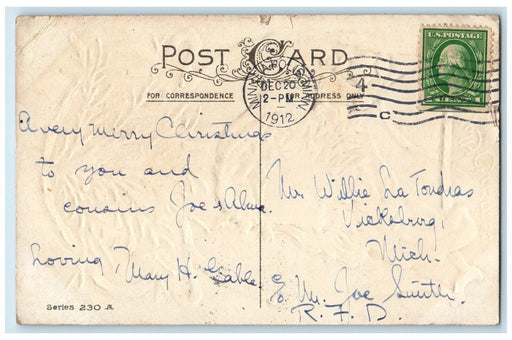 POST CARD
FOR CORRESPONDENCE
FOR ADDRESS ONLY
U.S. POSTAGE
MINNEAPOLIS, MINN.
DEC 20
2-PM
1912
4
C
A very merry Christmas
to you and
cousins Joe & Alma.
Loving, Mary H. Gable.
Mr. Willie La Tondras
Vicksburg,
Mich.
℅ Mr. Joe Smith.
R. F. D.
Series 230 A